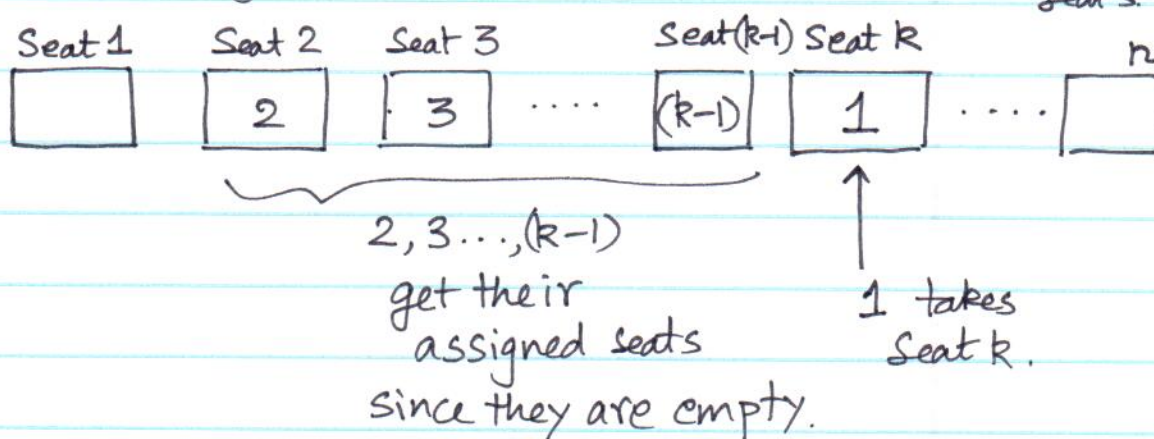 Seat 1 Seat 2 Seat 3 Seat(k-1) Seat k n
2 3 ..... (k-1) 1 .....
2, 3...,(k-1)
get their
assigned seats
since they are empty.
1 takes
Seat k.